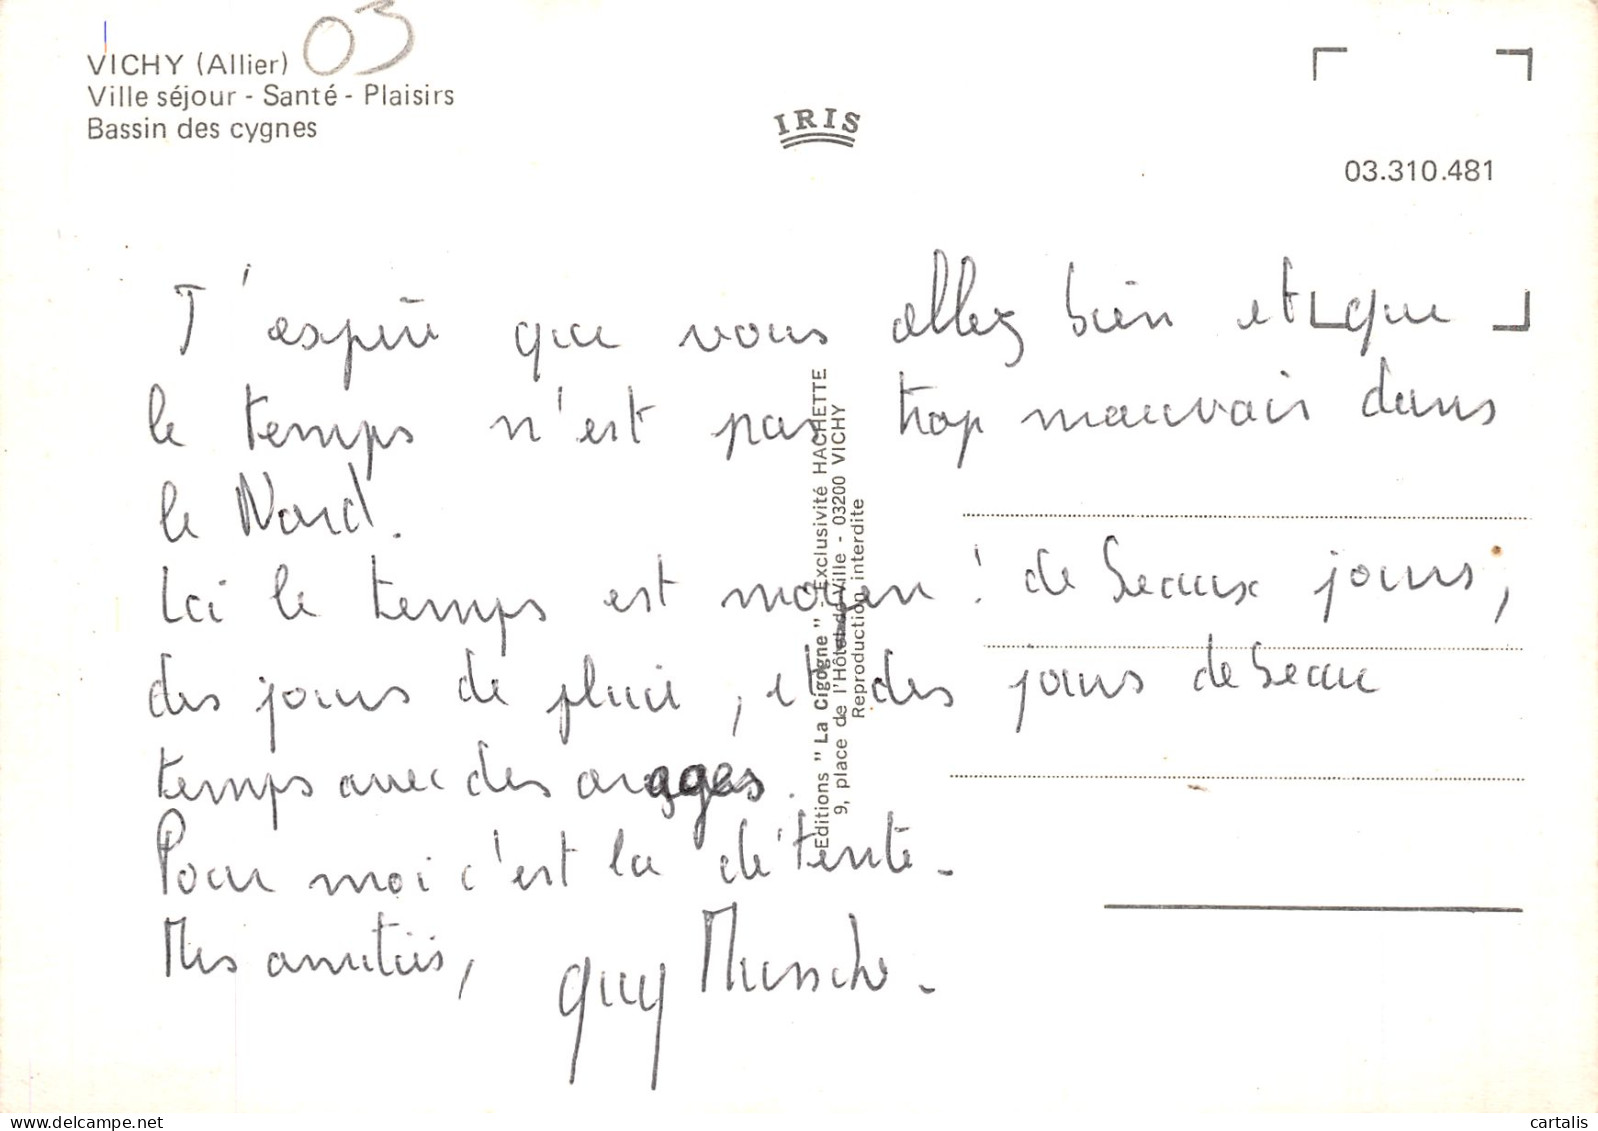 03
VICHY (Allier)
Ville séjour - Santé - Plaisirs
Bassin des cygnes
IRIS
03.310.481
J'espère que vous allez bien et que
le temps n'est pas trop mauvais dans
le Nord.
Ici le temps est moyen : de beaux jours,
des jours de pluie, et des jours de beau
temps avec des orages.
Pour moi c'est la détente.
Mes amitiés, Guy
Editions "La Cigogne" - Exclusivité HACHETTE
9, place de l'Hôtel de Ville - 03200 VICHY
Reproduction interdite
cartalis
delcampe.net